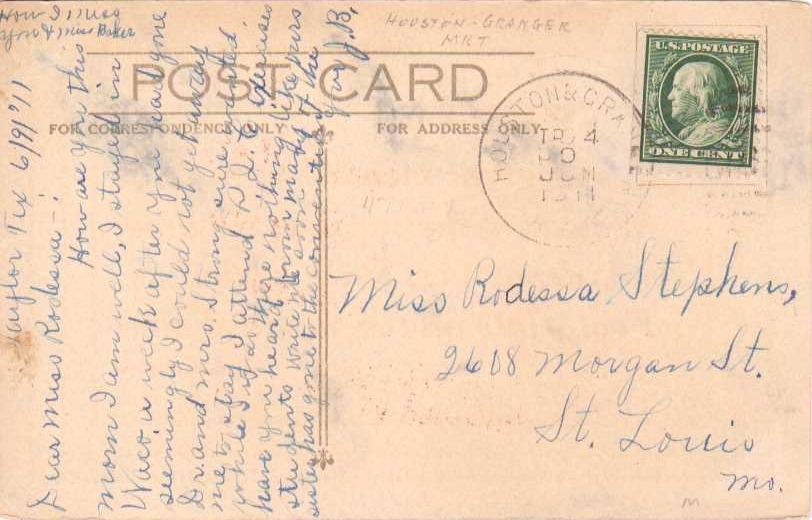 How I miss
you & Miss Baker
Taylor Tex 6/9/'11
Dear Miss Rodessa -:
How are you this
morn I am well, I stayed in
Waco a week after you had gone
seemingly I could not get away
Dr. and Mrs. Strong sure wanted
me to stay I attend
while I was there nothing like
have you heard from many of the
students write me soon
sister has gone to the convention
Yours J.B.
HOUSTON-GRANGER
MKT
POST CARD
FOR CORRESPONDENCE ONLY
FOR ADDRESS ONLY
HOUSTON & GRA
TR. 4
JUN
1911
U.S. POSTAGE
ONE CENT
Miss Rodessa Stephens,
2608 Morgan St.
St. Louis
Mo.